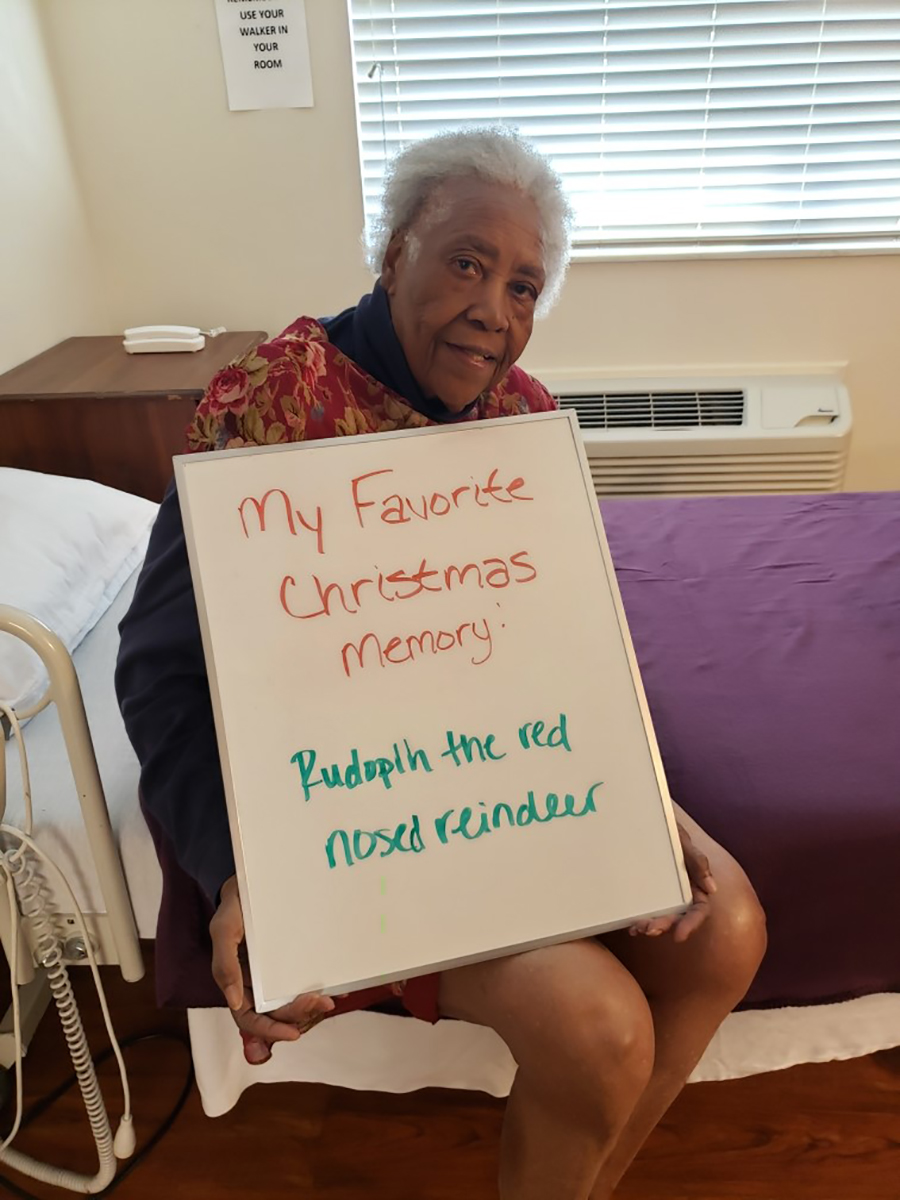 USE YOUR
WALKER IN
YOUR
ROOM
My Favorite
Christmas
Memory:
Rudoplh the red
nosed reindeer